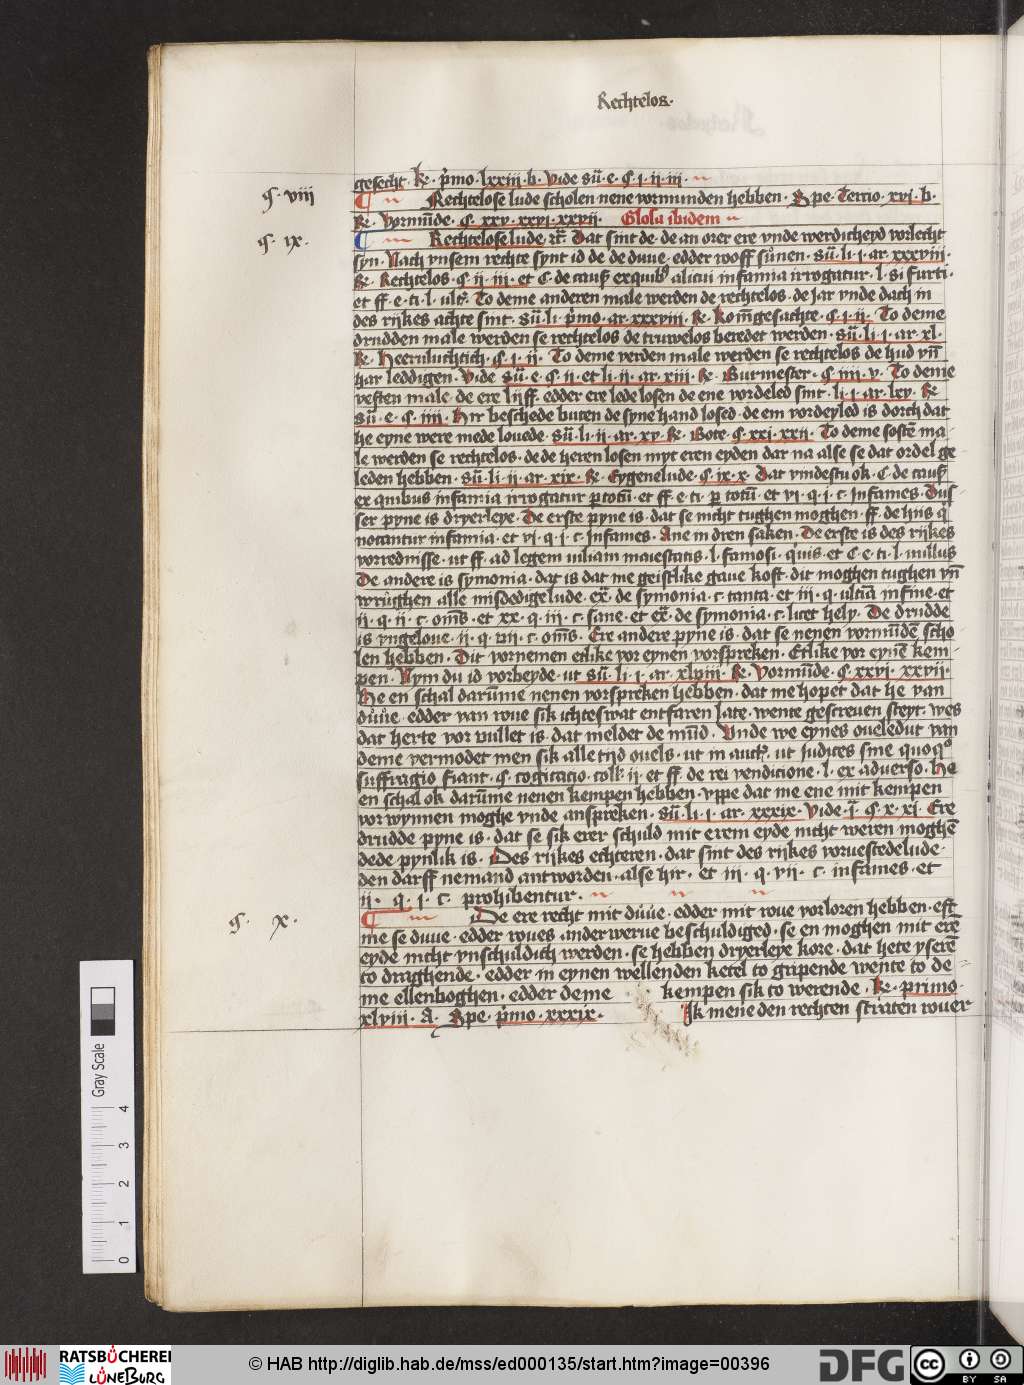 Rechtelos.
gesecht. R. p̄mo. lxxiii. b. Vide su̅. e. ꝯ. i. ii. iii.
ꝯ. viii
Rechtelose lude scholen nene vormunden hebben. Spe. Tercio. xvi. b.
R. Vormu̅de. ꝯ. xxv. xxvi. xxvii. Glosa ibidem
ꝯ. ix.
Rechtelose lude. ꝛc̅. Dat sint de. de an orer ere vnde werdicheyd vorlecht
syn. Nach vnsem rechte synt id de de duue. edder rooff sůnen. su̅. li. i. ar. xxxviii.
R. Rechtelos. ꝯ. ii. iii. et C. de causꝭ ex quibꝫ alicui infamia irrogatur. l. si furti.
et ff. e. ti. l. ulta̅. To deme anderen male werden de rechtelos. de Jar vnde dach in
des rijkes achte sint. su̅. li. p̄mo. ar. xxxviii. R. Kom̅gesachte. ꝯ. i. ii. To deme
drudden male werden se rechtelos de truwelos beredet werden. su̅. li. i. ar. xl.
R. Heervluchtich. ꝯ. i. ii. To deme verden male werden se rechtelos de hud vn̅
har leddigen. Vide su̅. e. ꝯ. ii. et li. ii. ar. xiii. R. Burmester. ꝯ. iiii. v. To deme
veften male. de ere lijff. edder ere lede losen de ene vordeled sint. li. i. ar. lxv. R.
su̅. e. ꝯ. iiii. Hir beschede buten de syne hand losed. de em vordeyled is dorch dat
he eyne were mede louede. su̅. li. ii. ar. xv. R. Bote. ꝯ. xxi. xxii. To deme soste̅ ma-
le werden se rechtelos. de de heren losen myt eren eyden dar na alse se dat ordel ge
leden hebben. su̅. li. ii. ar. xix. R. Eygenelude. ꝯ. ix. x. Dat vindestu ok. C. de causꝭ
ex quibus infamia irrogatur p totu̅. et ff. e. ti. p totu̅. et vi. q. i. c. Infames. Dus-
ser pyne is dryerleye. De erste pyne is. dat se nicht tughen moghen. ff. de hiis q̇
notantur infamia. et vi. q. i. c. Infames. Ane in dren saken. De erste is des rijkes
vorrednisse. ut ff. ad legem iuliam maiestatis. l. famosi. q̇uis. et C. e. ti. l. nullus
De andere is symonia. dat is dat me geistlike gaue koft. dit moghen tughen vn̅
wrůghen alle misdedige lude. ex̅. de symonia. c. tanta. et iii. q. ultīa in fine. et
ii. q. ii. c. om̅s. et xx. q. iii. c. sane. et ex̅. de symonia. c. licet hely. De drudde
is vngeloue. ii. q. vii. c. om̅s. Ere andere pyne is. dat se nenen vormu̅de̅ scho-
len hebben. Dit vornemen etlike vor eynen vorspreken. Etlike vor eyne̅ kem-
pen. Nym du id vor beyde. ut su̅. li. i. ar. xlviii. R. Vormu̅de. ꝯ. xxvi. xxvii.
He en schal daru̅me nenen vorspreken hebben. dat me hopet dat he van
důue. edder van roue sik ichteswat entfaren late. wente gescreuen steyt. wes
dat herte vor vullet is. dat meldet de mu̅d. Vnde we eynes oueledut van
deme vermodet men sik alle tijd ouels. ut in auct̅. ut Judices sine quoqꝫ
suffragio fiant. ꝯ. cogitacio. coll̅. ii. et ff. de rei vendicione. l. ex adverso. He
en schal ok daru̅me nenen kempen hebben. vppe dat me ene mit kempen
vorwynnen moghe vnde anspreken. su̅. li. i. ar. xxxix. Vide. ī. ꝯ. x. xi. Ere
drudde pyne is. dat se sik erer schuld mit erem eyde nicht weren moghe̅
dede pynlik is. Des rijkes echteren. dat sint des rijkes voruestede lude.
den darff nemand antworden. alse hir. et iii. q. vii. c. infames. et
ii. q. i. c. prohibentur.
ꝯ. x.
De ere recht mit důue. edder mit roue vorloren hebben. eft
me se duue. edder roues anderwerue beschuldiged. se en moghen mit ere̅
eyde nicht vnschuldich werden. se hebben dryerleye kore. dat hete ysere̅
to draghende. edder in eynen wellenden ketel to gripende wente to de-
me ellenboghen. edder deme kempen sik to werende. R. primo.
xlviii. A. Spe. p̄mo. xxxix. Ik mene den rechten straten rouer
Gray Scale
0 1 2 3 4
RATSBÜCHEREI LÜNEBURG
© HAB http://diglib.hab.de/mss/ed000135/start.htm?image=00396
DFG
cc BY SA